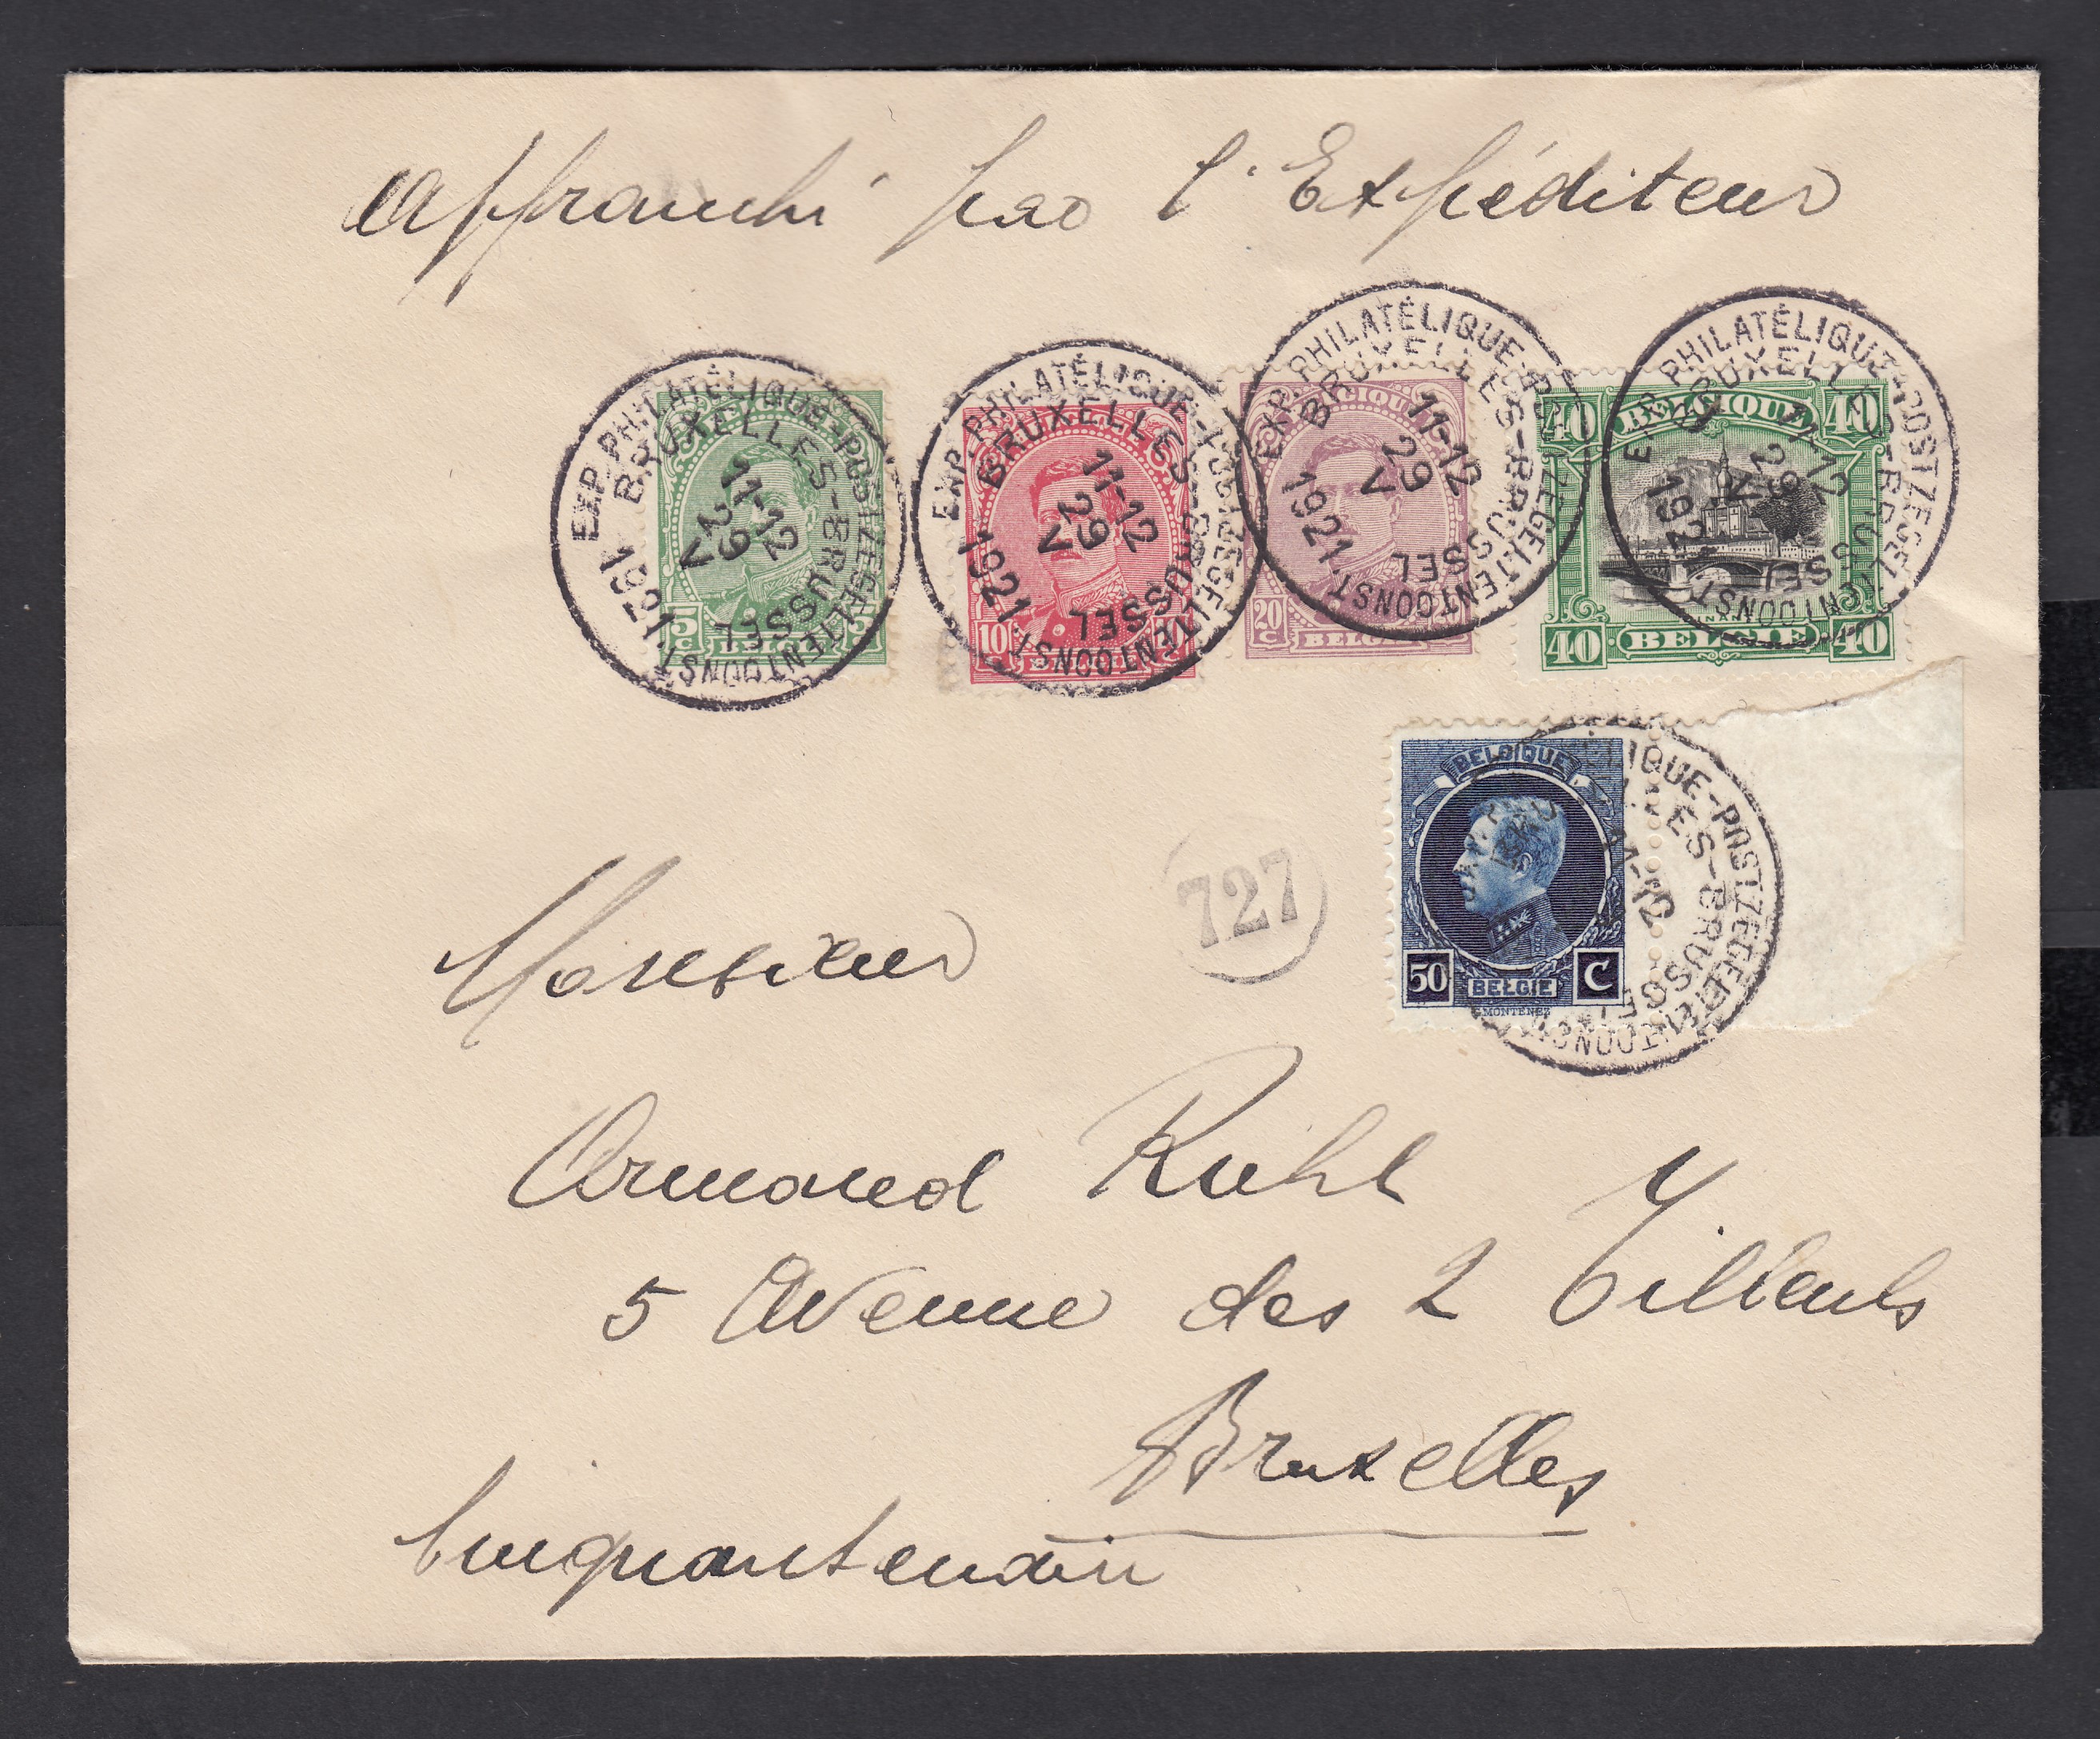 Affranchi par l'Expéditeur
EXP. PHILATÉLIQUE-POSTZEGELTENTOONST.
BRUXELLES-BRUSSEL
11-12
29
V
1921
5 C
5
EXP. PHILATÉLIQUE-POSTZEGELTENTOONST.
BRUXELLES-BRUSSEL
11-12
29
V
1921
10
EXP. PHILATÉLIQUE-POSTZEGELTENTOONST.
BRUXELLES-BRUSSEL
11-12
29
V
1921
BELGIQUE
20 C
BELGIE
EXP. PHILATÉLIQUE-POSTZEGELTENTOONST.
BRUXELLES-BRUSSEL
11-12
29
V
1921
40 BELGIQUE 40
DINANT
40 BELGIE 40
BELGIQUE
50 BELGIE C
G. MONTENEZ
ÉLIQUE-POSTZEGELTENTOONST
BRUXELLES-BRUSSEL
11-12
727
Monsieur
Armand Ruhl
5 Avenue des 2 Tilleuls
Bruxelles
Cinquantenaire